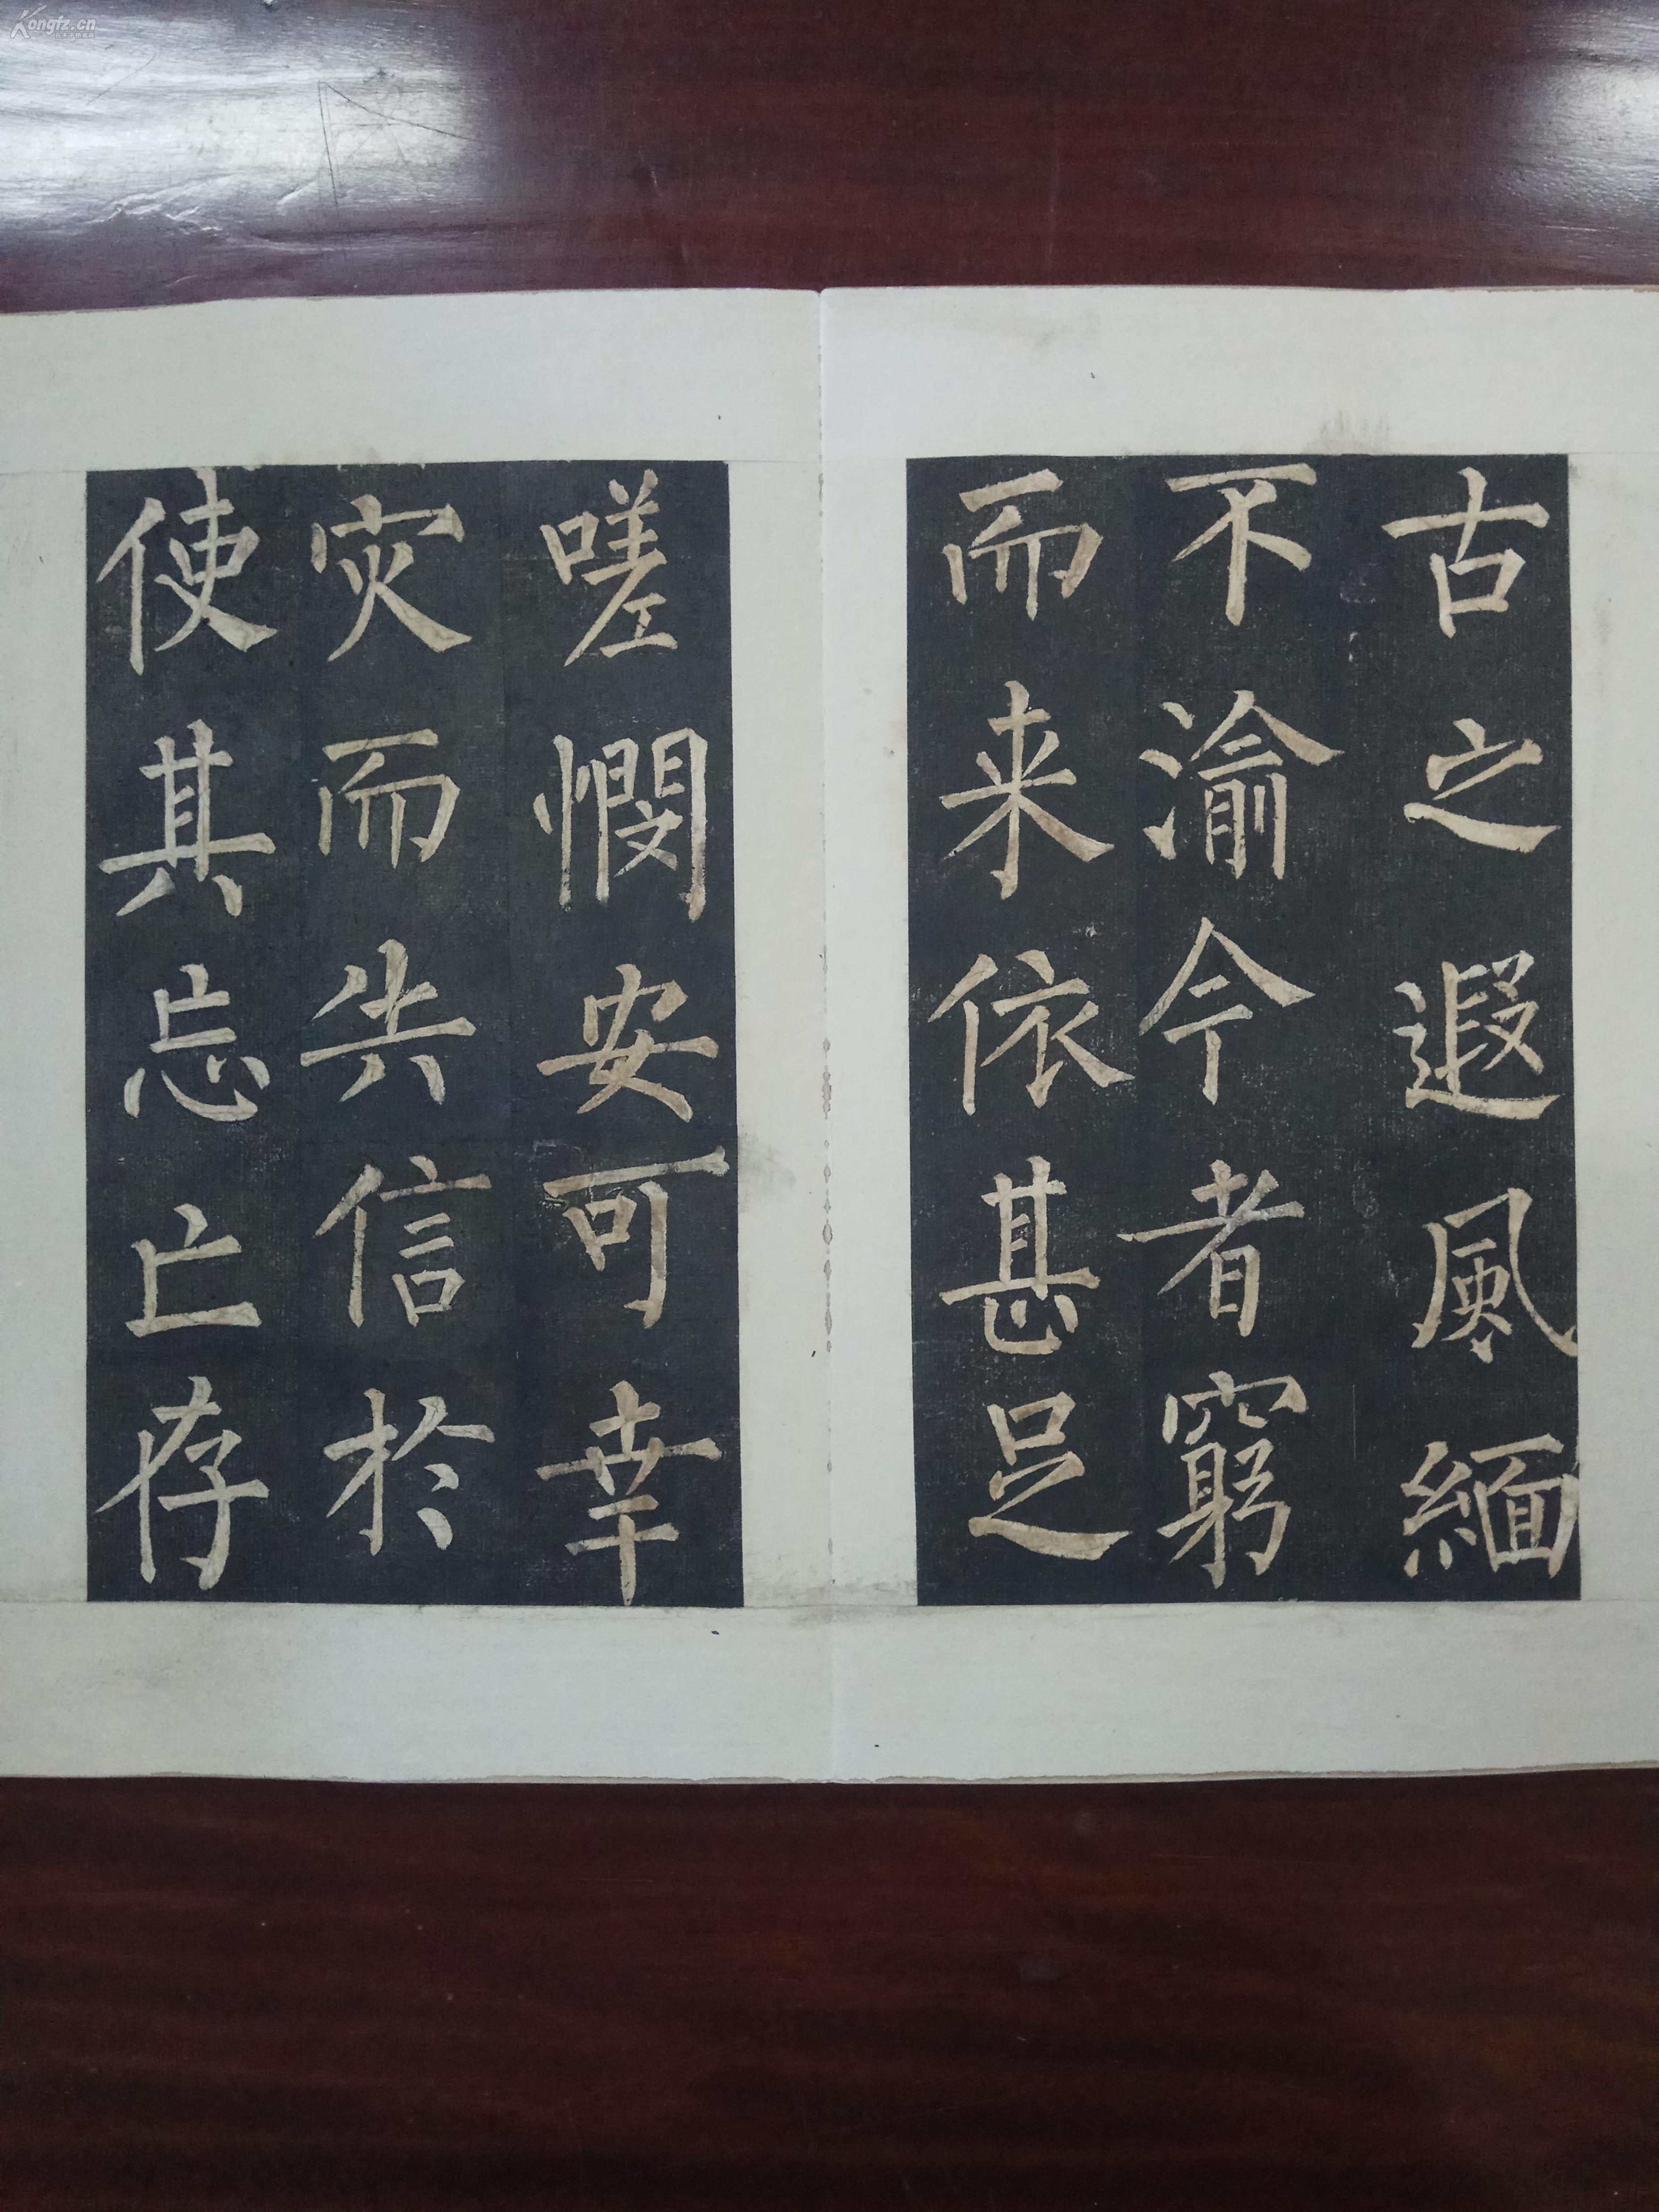 古之遐風緬
不渝今者窮
而来依甚足
嗟憫安可幸
灾而失信於
使其忘亡存
Kongfz.cn